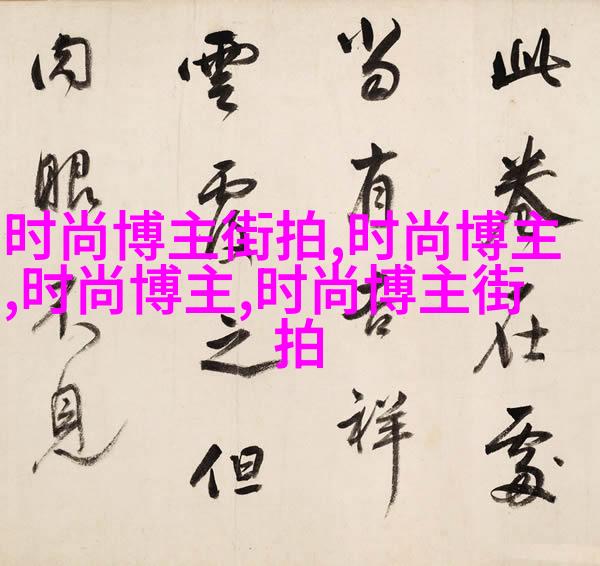 此卷在處
當有吉祥
雲覆之但
肉眼不見
时尚博主街拍,时尚博主
,时尚博主,时尚博主街
拍